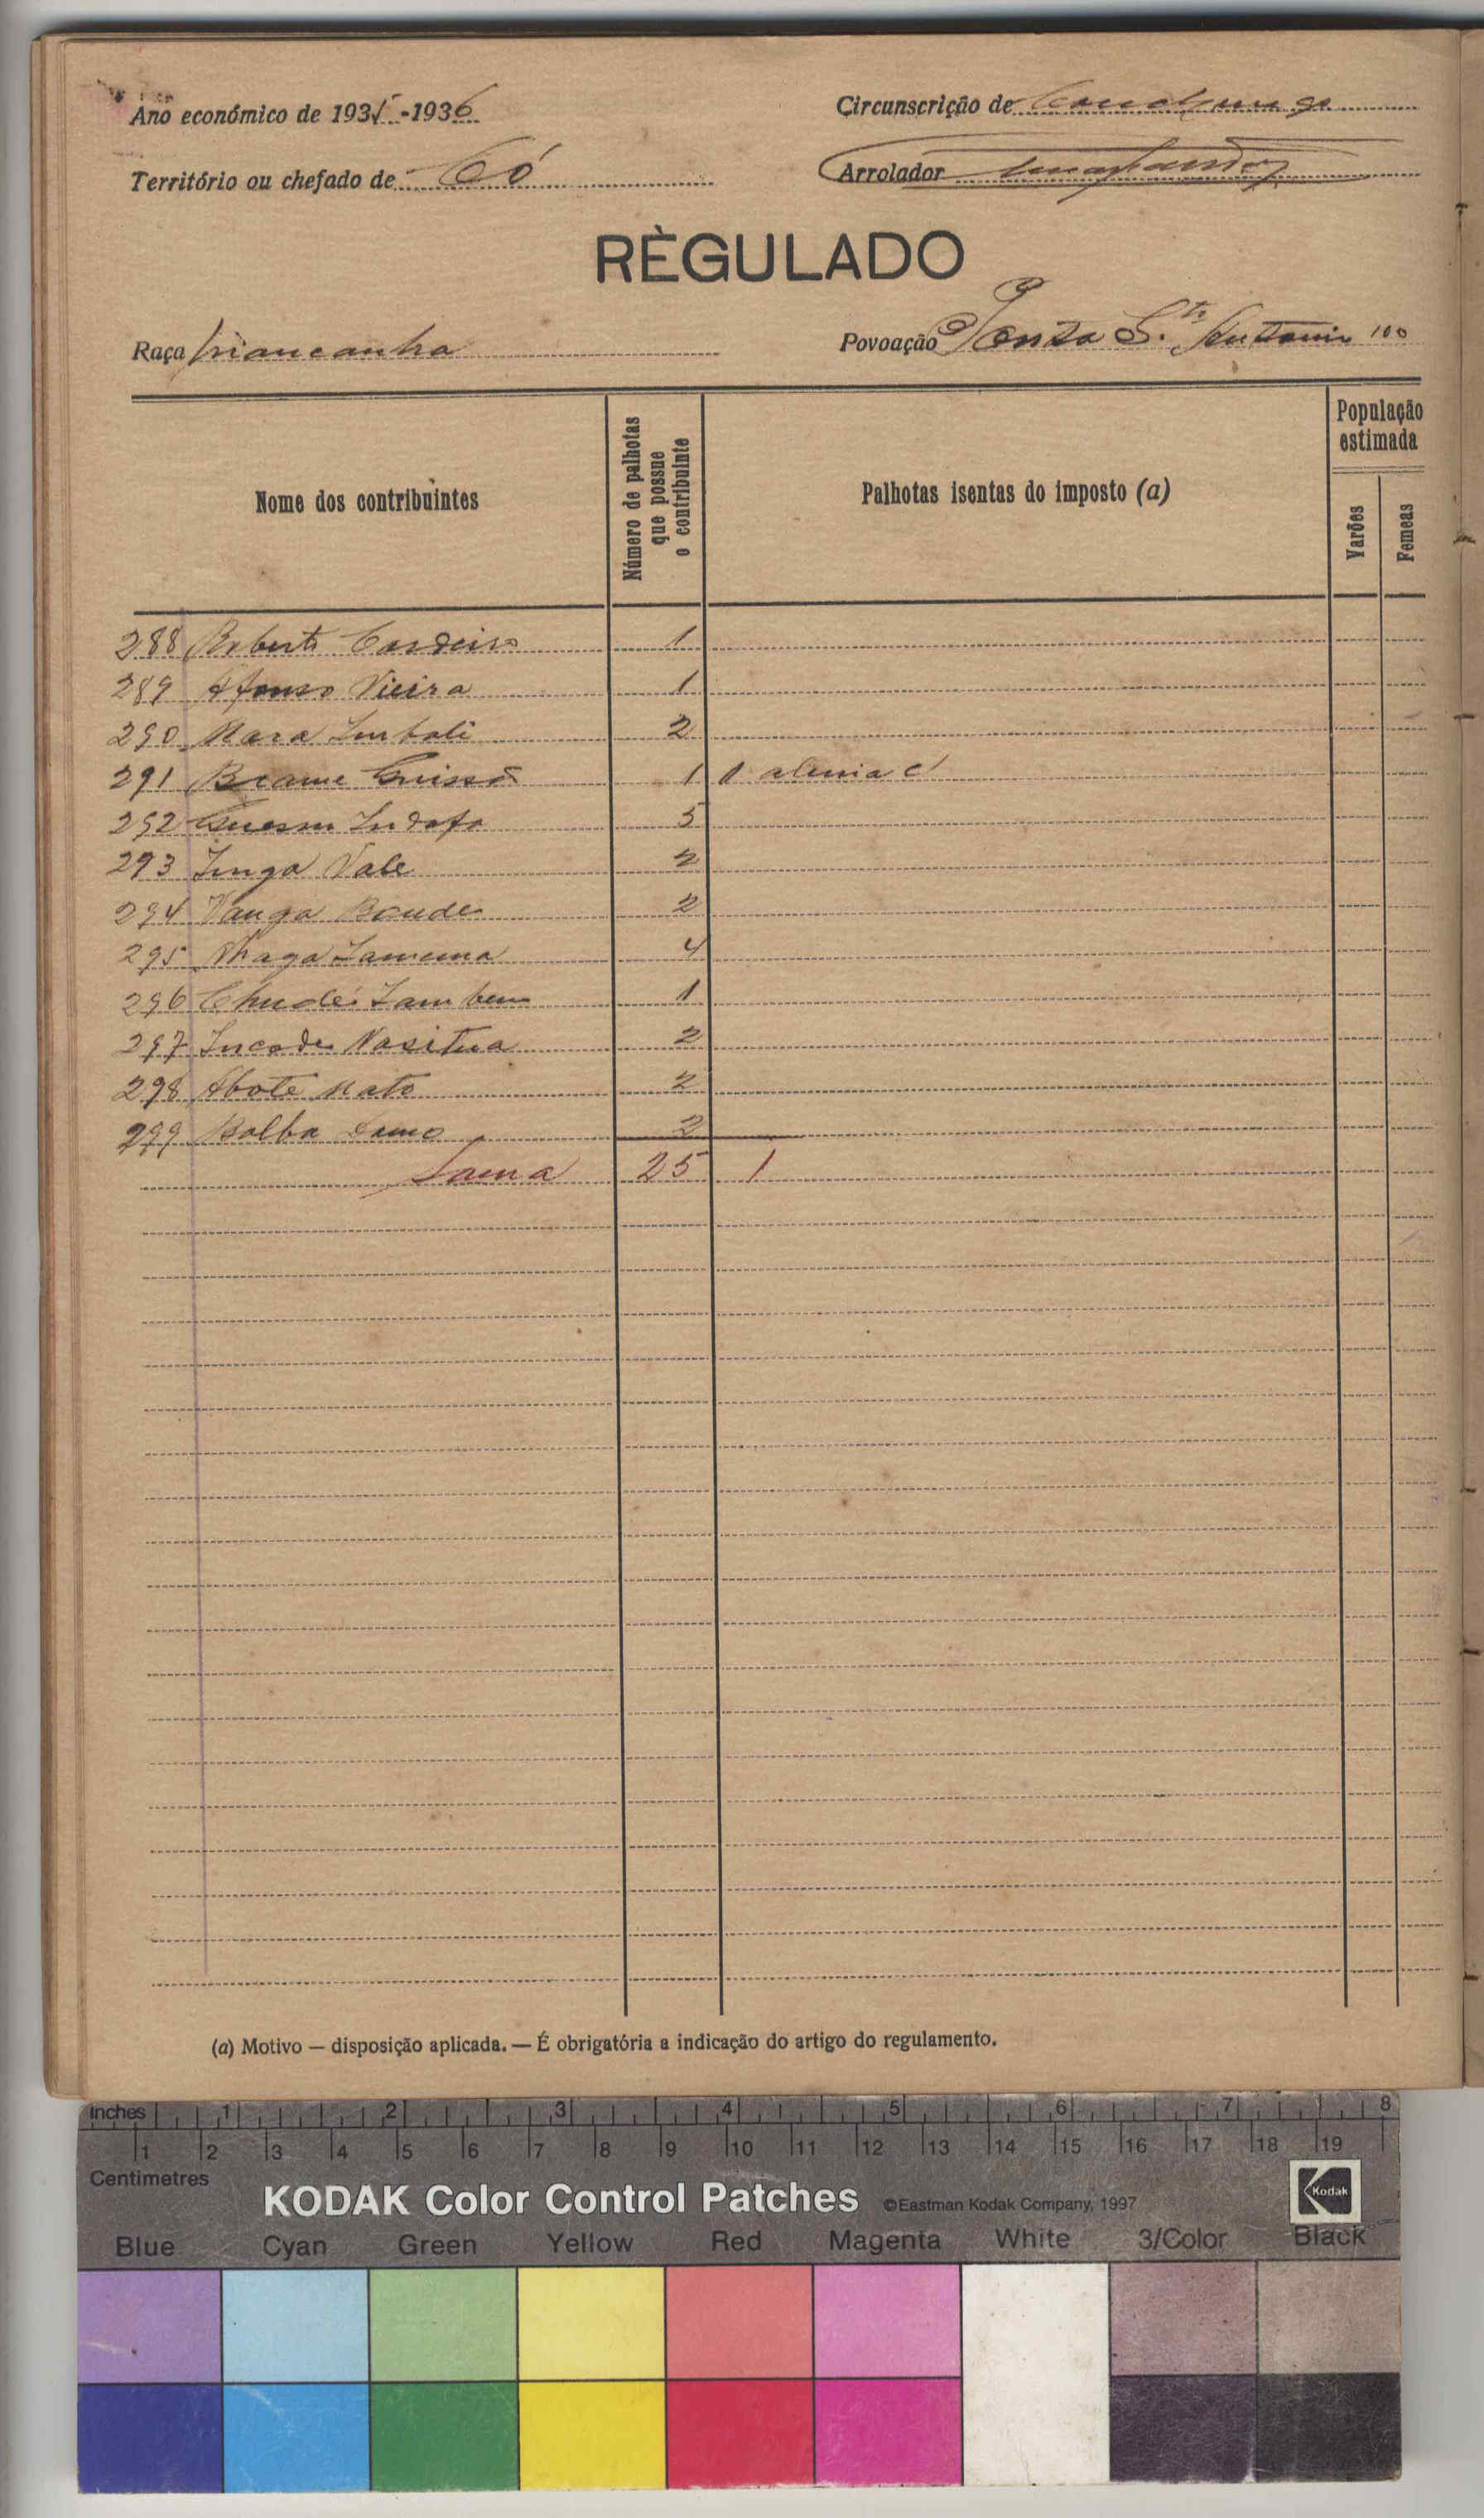 Ano económico de 1935-1936
Circunscrição de Canchungo
Território ou chefado de Có
Arrolador
RÈGULADO
Raça mancanha
Povoação Ponta S.to Antonio 100
Nome dos contribuintes
Número de palhotas que possue o contribuinte
Palhotas isentas do imposto (a)
População estimada
Varões
Femeas
288 Roberto Cardeiro 1
289 Afonso Vieira 1
290 Mara Imbali 2
291 Brame 1 1
292 5
293 Vale 2
294 2
295 4
296 1
297 2
298 Abote Nato 2
299 Balba 2
Soma 25 1
(a) Motivo — disposição aplicada. — É obrigatória a indicação do artigo do regulamento.
inches 1 2 3 4 5 6 7 8
1 2 3 4 5 6 7 8 9 10 11 12 13 14 15 16 17 18 19
Centimetres
KODAK Color Control Patches ©Eastman Kodak Company, 1997 Kodak
Blue Cyan Green Yellow Red Magenta White 3/Color Black